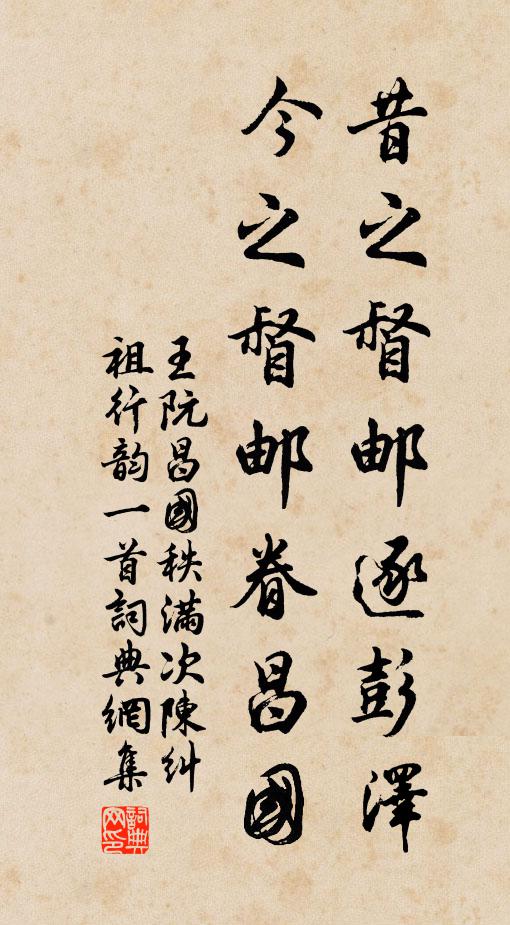 昔之督邮逐彭澤
今之督邮眷昌國
王阮昌國秩滿次陳糾
祖行韵一首詞典網集
詞典网印